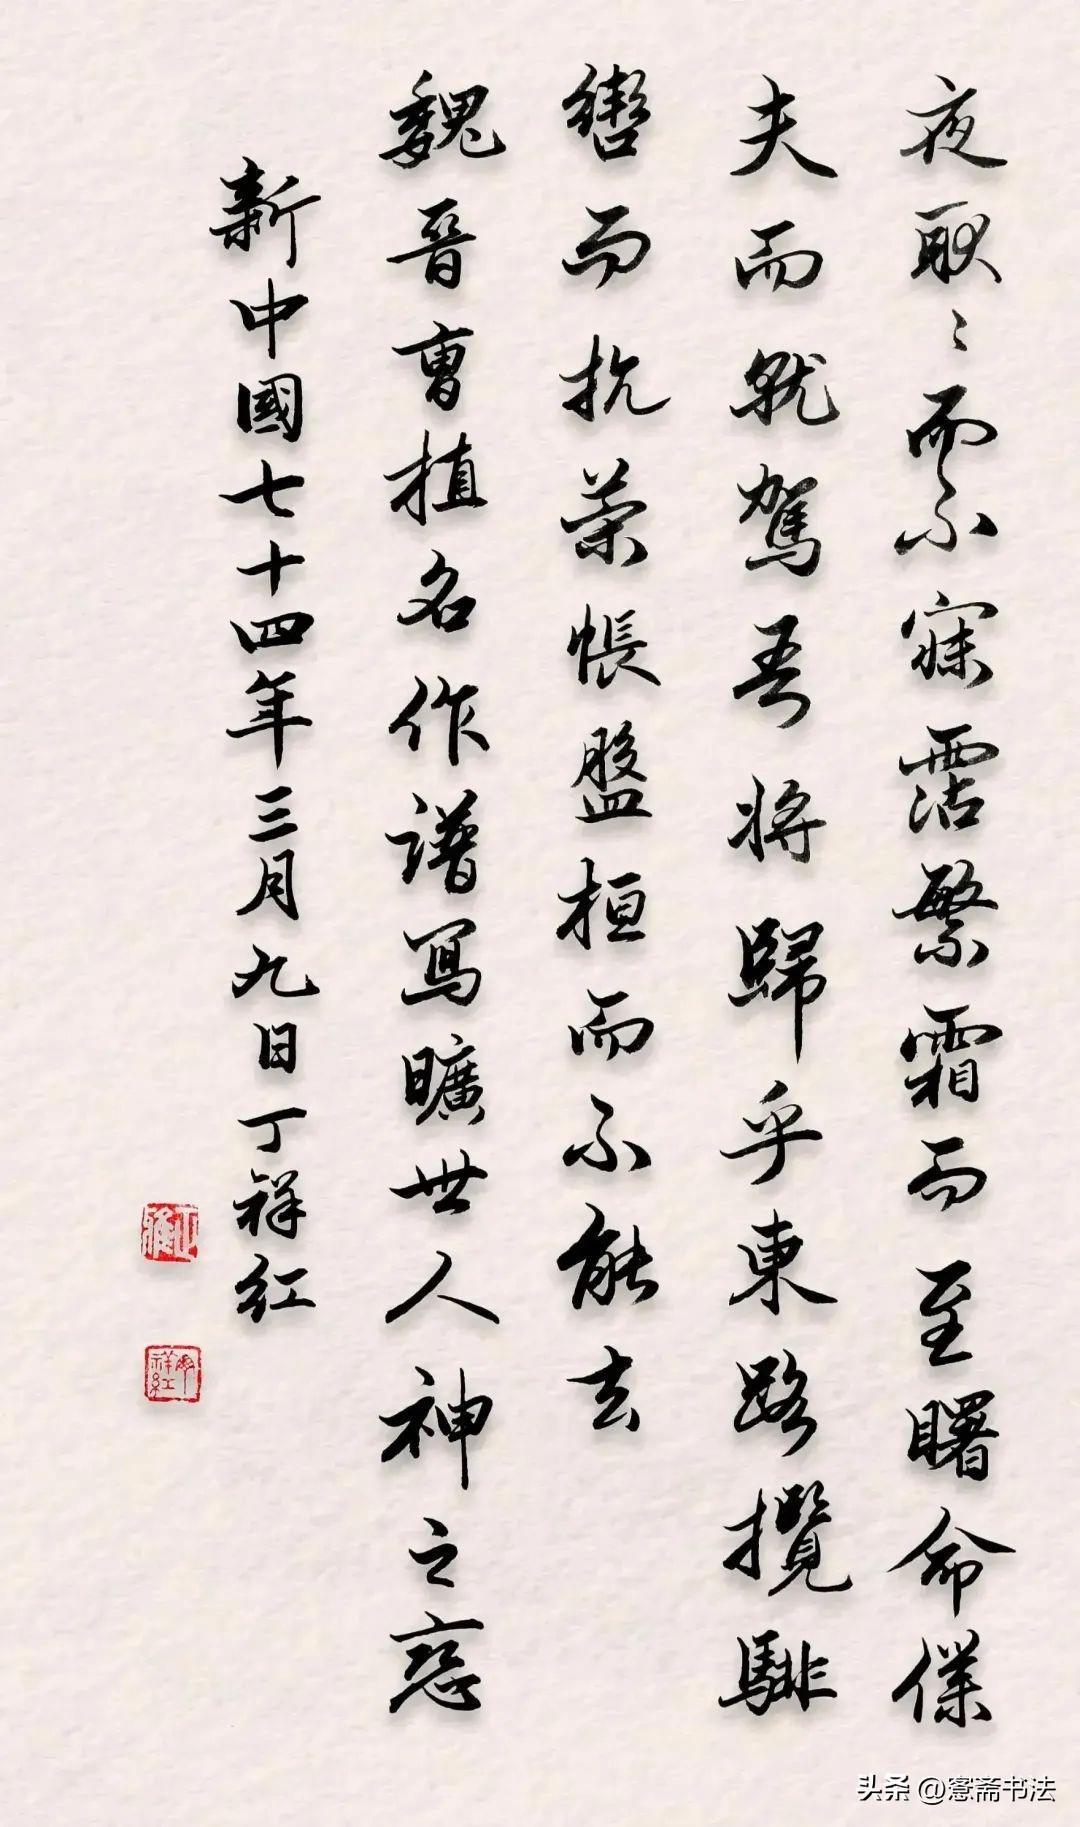 夜耿〻而不寐霑繁霜而至曙命僕
夫而就駕吾将歸乎東路攬騑
轡而抗策悵盤桓而不能去
魏晉曹植名作譜寫曠世人神之恋
新中國七十四年三月九日丁祥红
头条 @愙斋书法